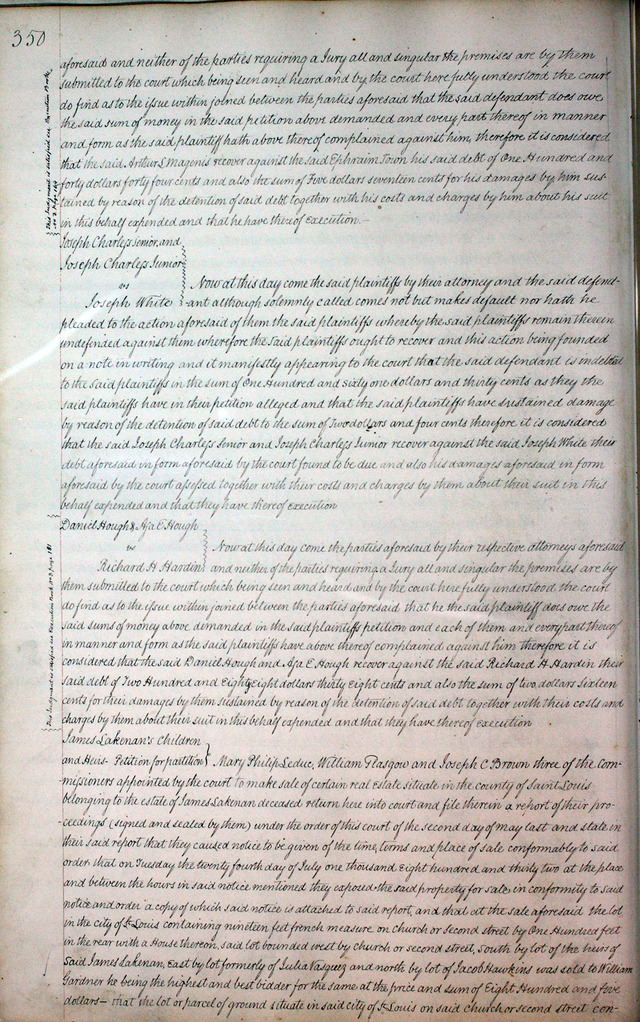 350
aforesaid and neither of the parties requiring a Jury all and singular the premises are by them
submitted to the court which being seen and heard and by the court here fully understood the court
do find as to the issue within joined between the parties aforesaid that the said defendant does owe
the said sum of money in the said petition above demanded and every part thereof in manner
and form as the said plaintiff hath above thereof complained against him, therefore it is considered
that the said Arthur L Magenis recover against the said Ephraim Town his said debt of One Hundred and
forty dollars forty four cents and also the sum of Five dollars seventeen cents for his damages by him sus-
tained by reason of the detention of said debt together with his costs and charges by him about his suit
in this behalf expended and that he have thereof execution.-
Joseph Charless Senior, and
Joseph Charless Junior
vs Now at this day come the said plaintiffs by their attorney and the said defend-
Joseph White ant although solemnly called comes not but makes default nor hath he
pleaded to the action aforesaid of them the said plaintiffs whereby the said plaintiffs remain therein
undefended against them wherefore the said plaintiffs ought to recover and this action being founded
on a note in writing and it manifestly appearing to the court that the said defendant is indebted
to the said plaintiffs in the sum of One Hundred and sixty one dollars and thirty cents as they the
said plaintiffs have in their petition alleged and that the said plaintiffs have sustained damage
by reason of the detention of said debt to the sum of Two dollars and four cents therefore it is considered
that the said Joseph Charless Senior and Joseph Charless Junior recover against the said Joseph White their
debt aforesaid in form aforesaid by the court found to be due and also his damages aforesaid in form
aforesaid by the court assessed together with their costs and charges by them about their suit in this
behalf expended and that they have thereof execution
Daniel Hough & Asa E Hough
vs Now at this day come the parties aforesaid by their respective attorneys aforesaid
Richard H Hardin and neither of the parties requiring a Jury all and singular the premises are by
them submitted to the court which being seen and heard and by the court here fully understood the court
do find as to the issue within joined between the parties aforesaid that he the said plaintiff does owe the
said sums of money above demanded in the said plaintiffs petition and each of them and every part thereof
in manner and form as the said plaintiffs have above thereof complained against him therefore it is
considered that the said Daniel Hough and Asa E Hough recover against the said Richard H Hardin their
said debt of Two Hundred and Eighty Eight dollars thirty Eight cents and also the sum of two dollars Sixteen
cents for their damages by them sustained by reason of the detention of said debt together with their costs and
charges by them about their suit in this behalf expended and that they have thereof execution
James Lakenan's Children
and Heirs - Petition for partition Mary Philip Leduc, William Glasgow and Joseph C Brown three of the Com-
missioners appointed by the court to make sale of certain real Estate situate in the county of Saint Louis
belonging to the estate of James Lakenan deceased return here into court and file therein a report of their pro-
ceedings (signed and sealed by them) under the order of this court of the second day of May last and state in
their said report that they caused notice to be given of the time, terms and place of sale conformably to said
order that on Tuesday the twenty fourth day of July one thousand Eight hundred and thirty two at the place
and between the hours in said notice mentioned they exposed the said property for sale, in conformity to said
notice and order a copy of which said notice is attached to said report, and that at the sale aforesaid the lot
in the city of St Louis containing nineteen feet french measure on church or second street by One Hundred feet
in the rear with a House thereon, said lot bounded west by church or second street, South by lot of the heirs of
said James Lakenan, East by lot formerly of Julia Vasquez and north by lot of Jacob Hawkins was sold to William
Gardner he being the highest and best bidder for the same at the price and sum of Eight Hundred and five
dollars - that the lot or parcel of ground situate in said city of St Louis on said church or second street con-